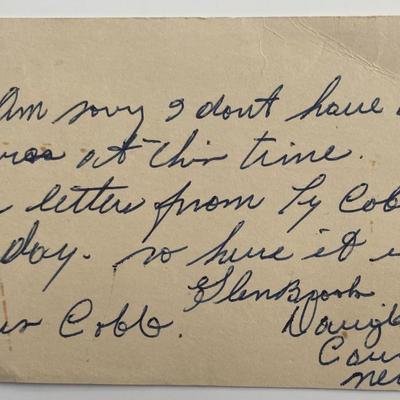 Am sorry I dont have
at this time.
letters from Ty Cob
day. so here it i
GlenBrook
Cobb. Dougl
Coun
Nev